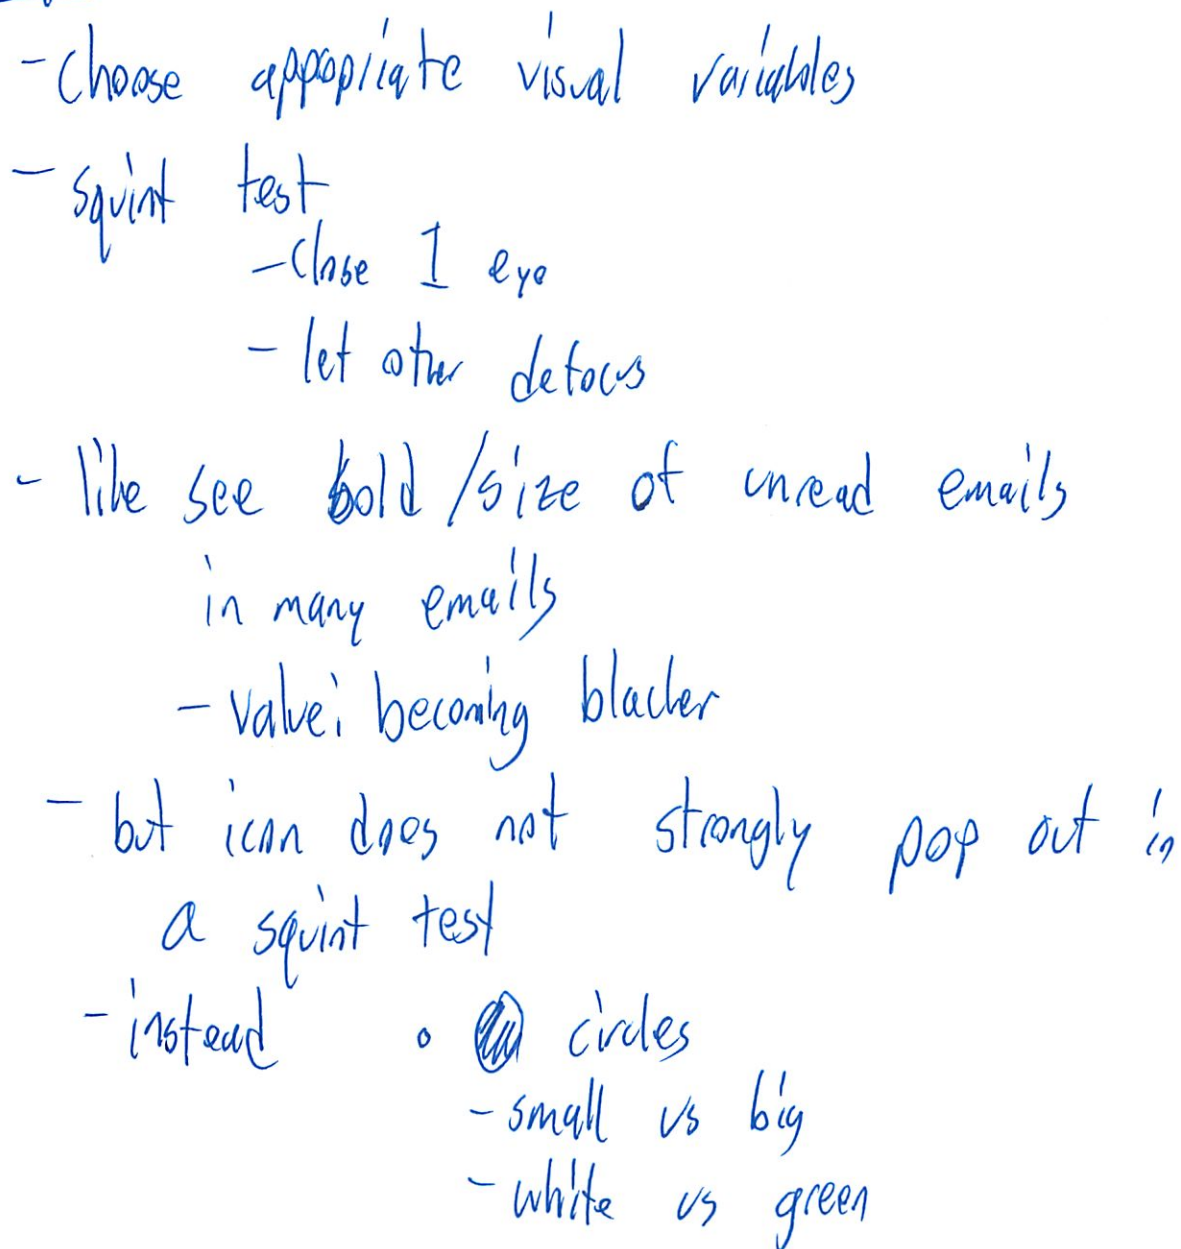 - Choose appopriate visual variables
- squint test
- Close 1 eye
- let other defocus
- like see bold/size of unread emails
in many emails
- value: becoming blacker
- but icon does not strongly pop out in
a squint test
- instead circles
- small vs big
- white vs green